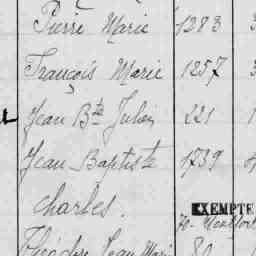 Pierre Marie 1283 3
François Marie 1257 3
Jean Bte Julien 221 1
Jean Baptiste 1739 4
Charles.
EXEMPTÉ
Théodore Jean Marie 80